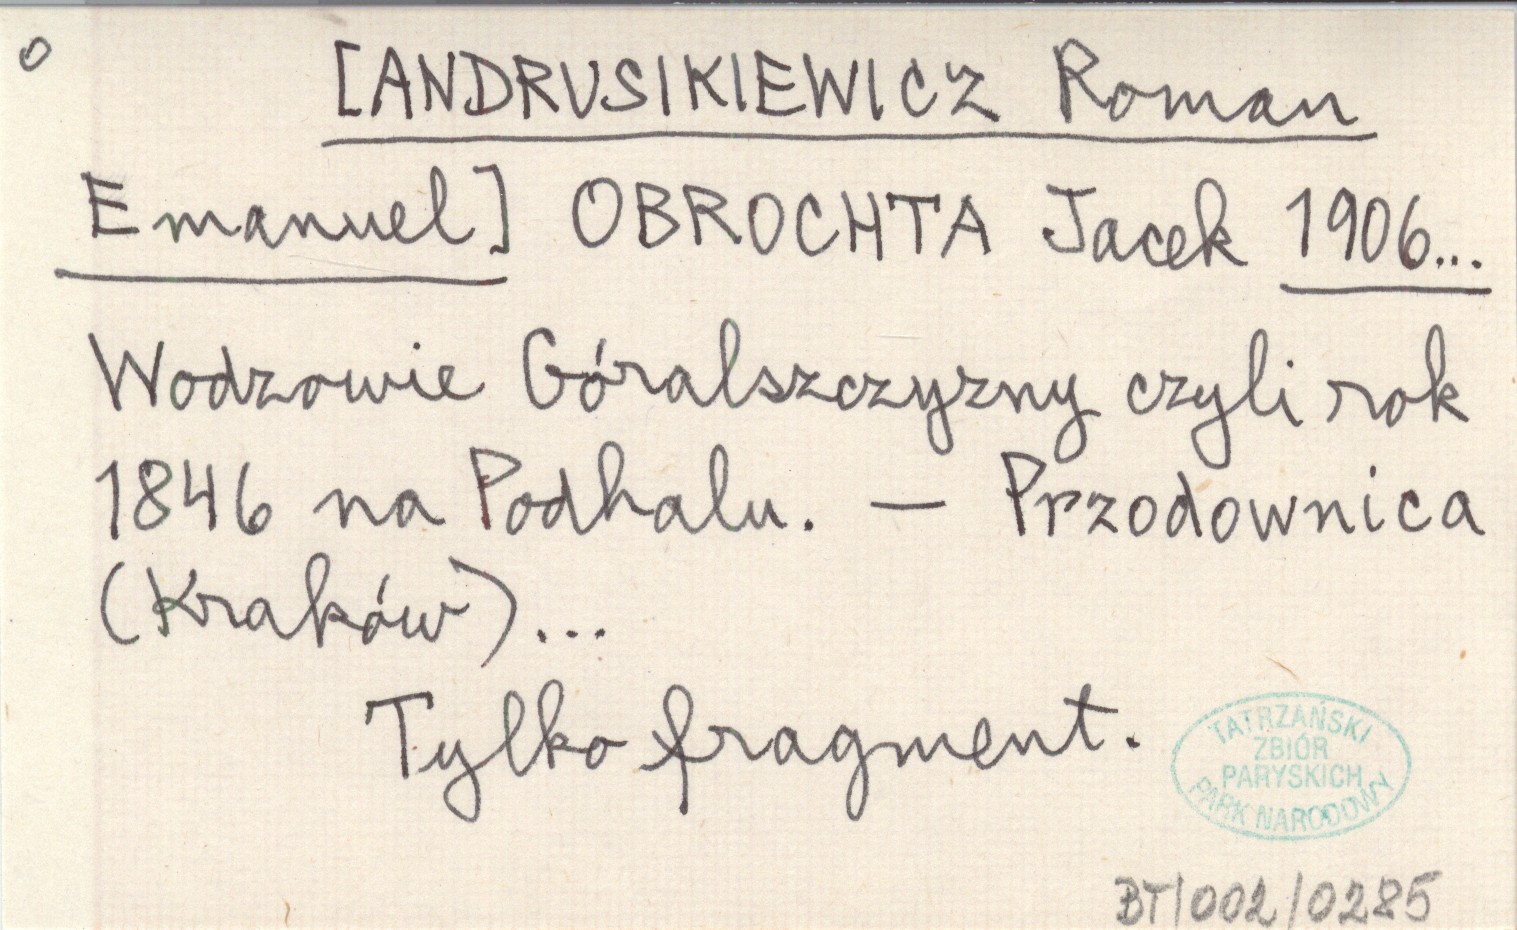 o
[ANDRUSIKIEWICZ Roman
Emanuel] OBROCHTA Jacek 1906...
Wodzowie Góralszczyzny czyli rok
1846 na Podhalu. — Przodownica
(Kraków)...
Tylko fragment.
TATRZAŃSKI
ZBIÓR
PARYSKICH
PARK NARODOWY
BT/002/0285